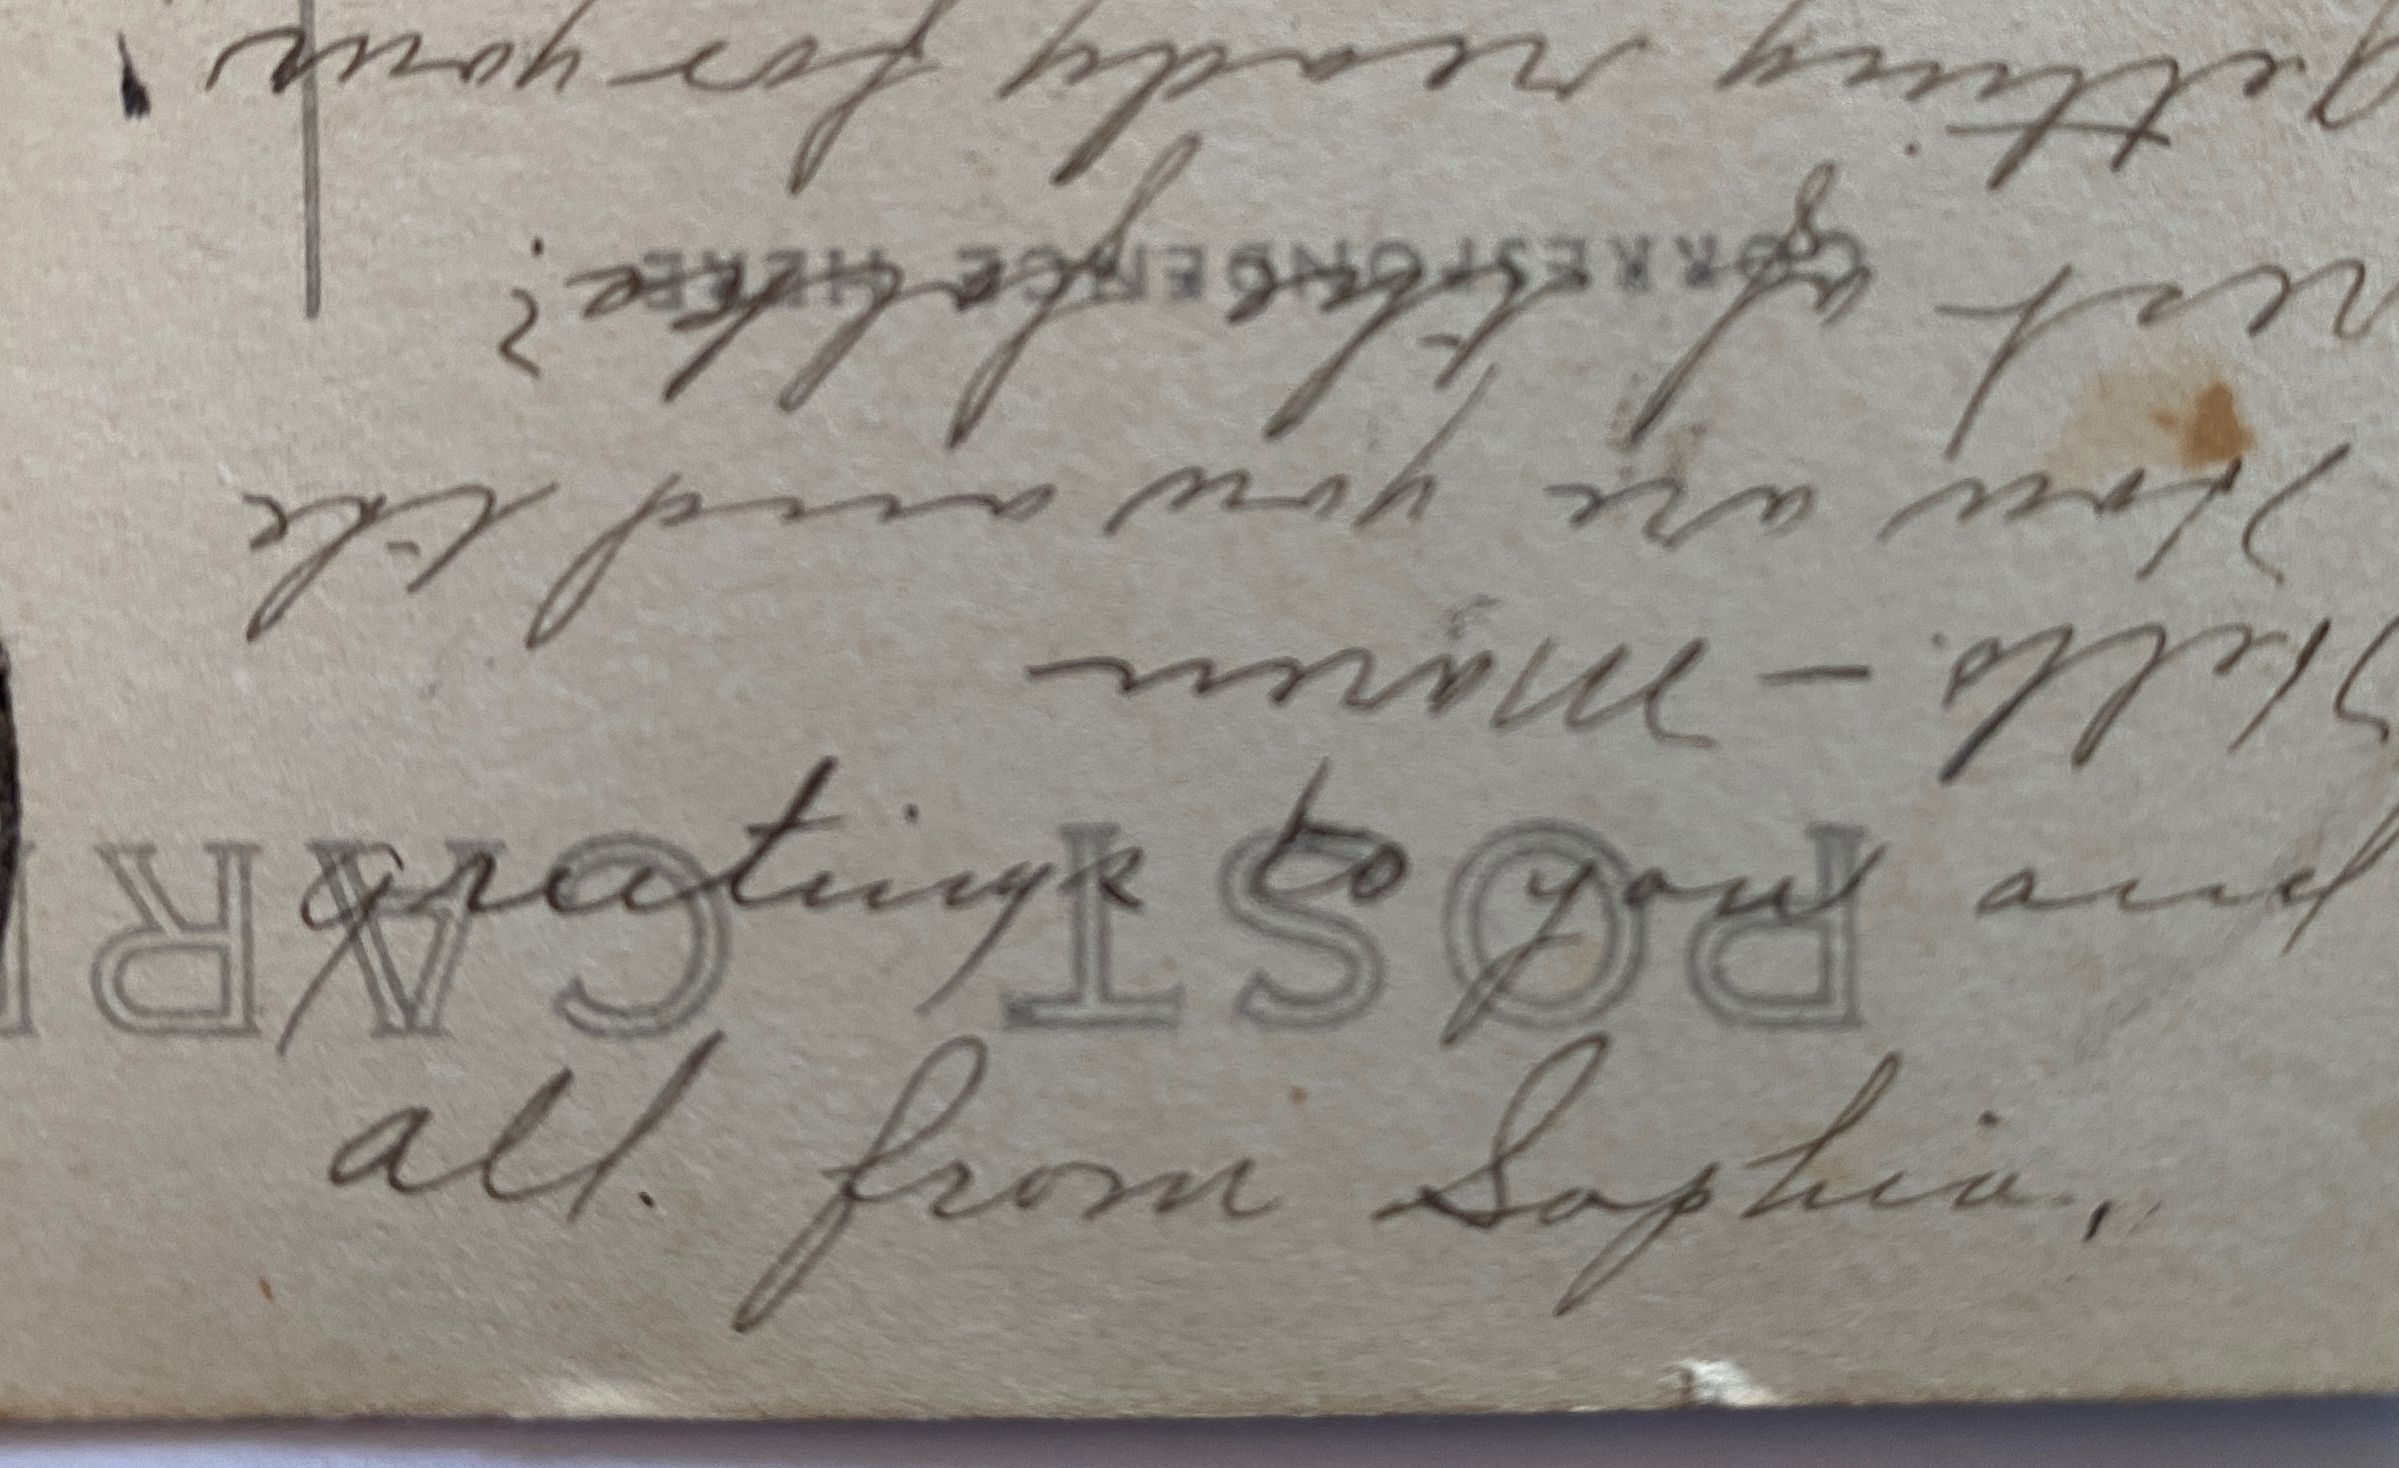 POST CAR
Hello. – Maren
How are you and the
CORRESPONDENCE HERE
rest of the folks?
getting ready for your
Greetings to you and
all. from Sophia,